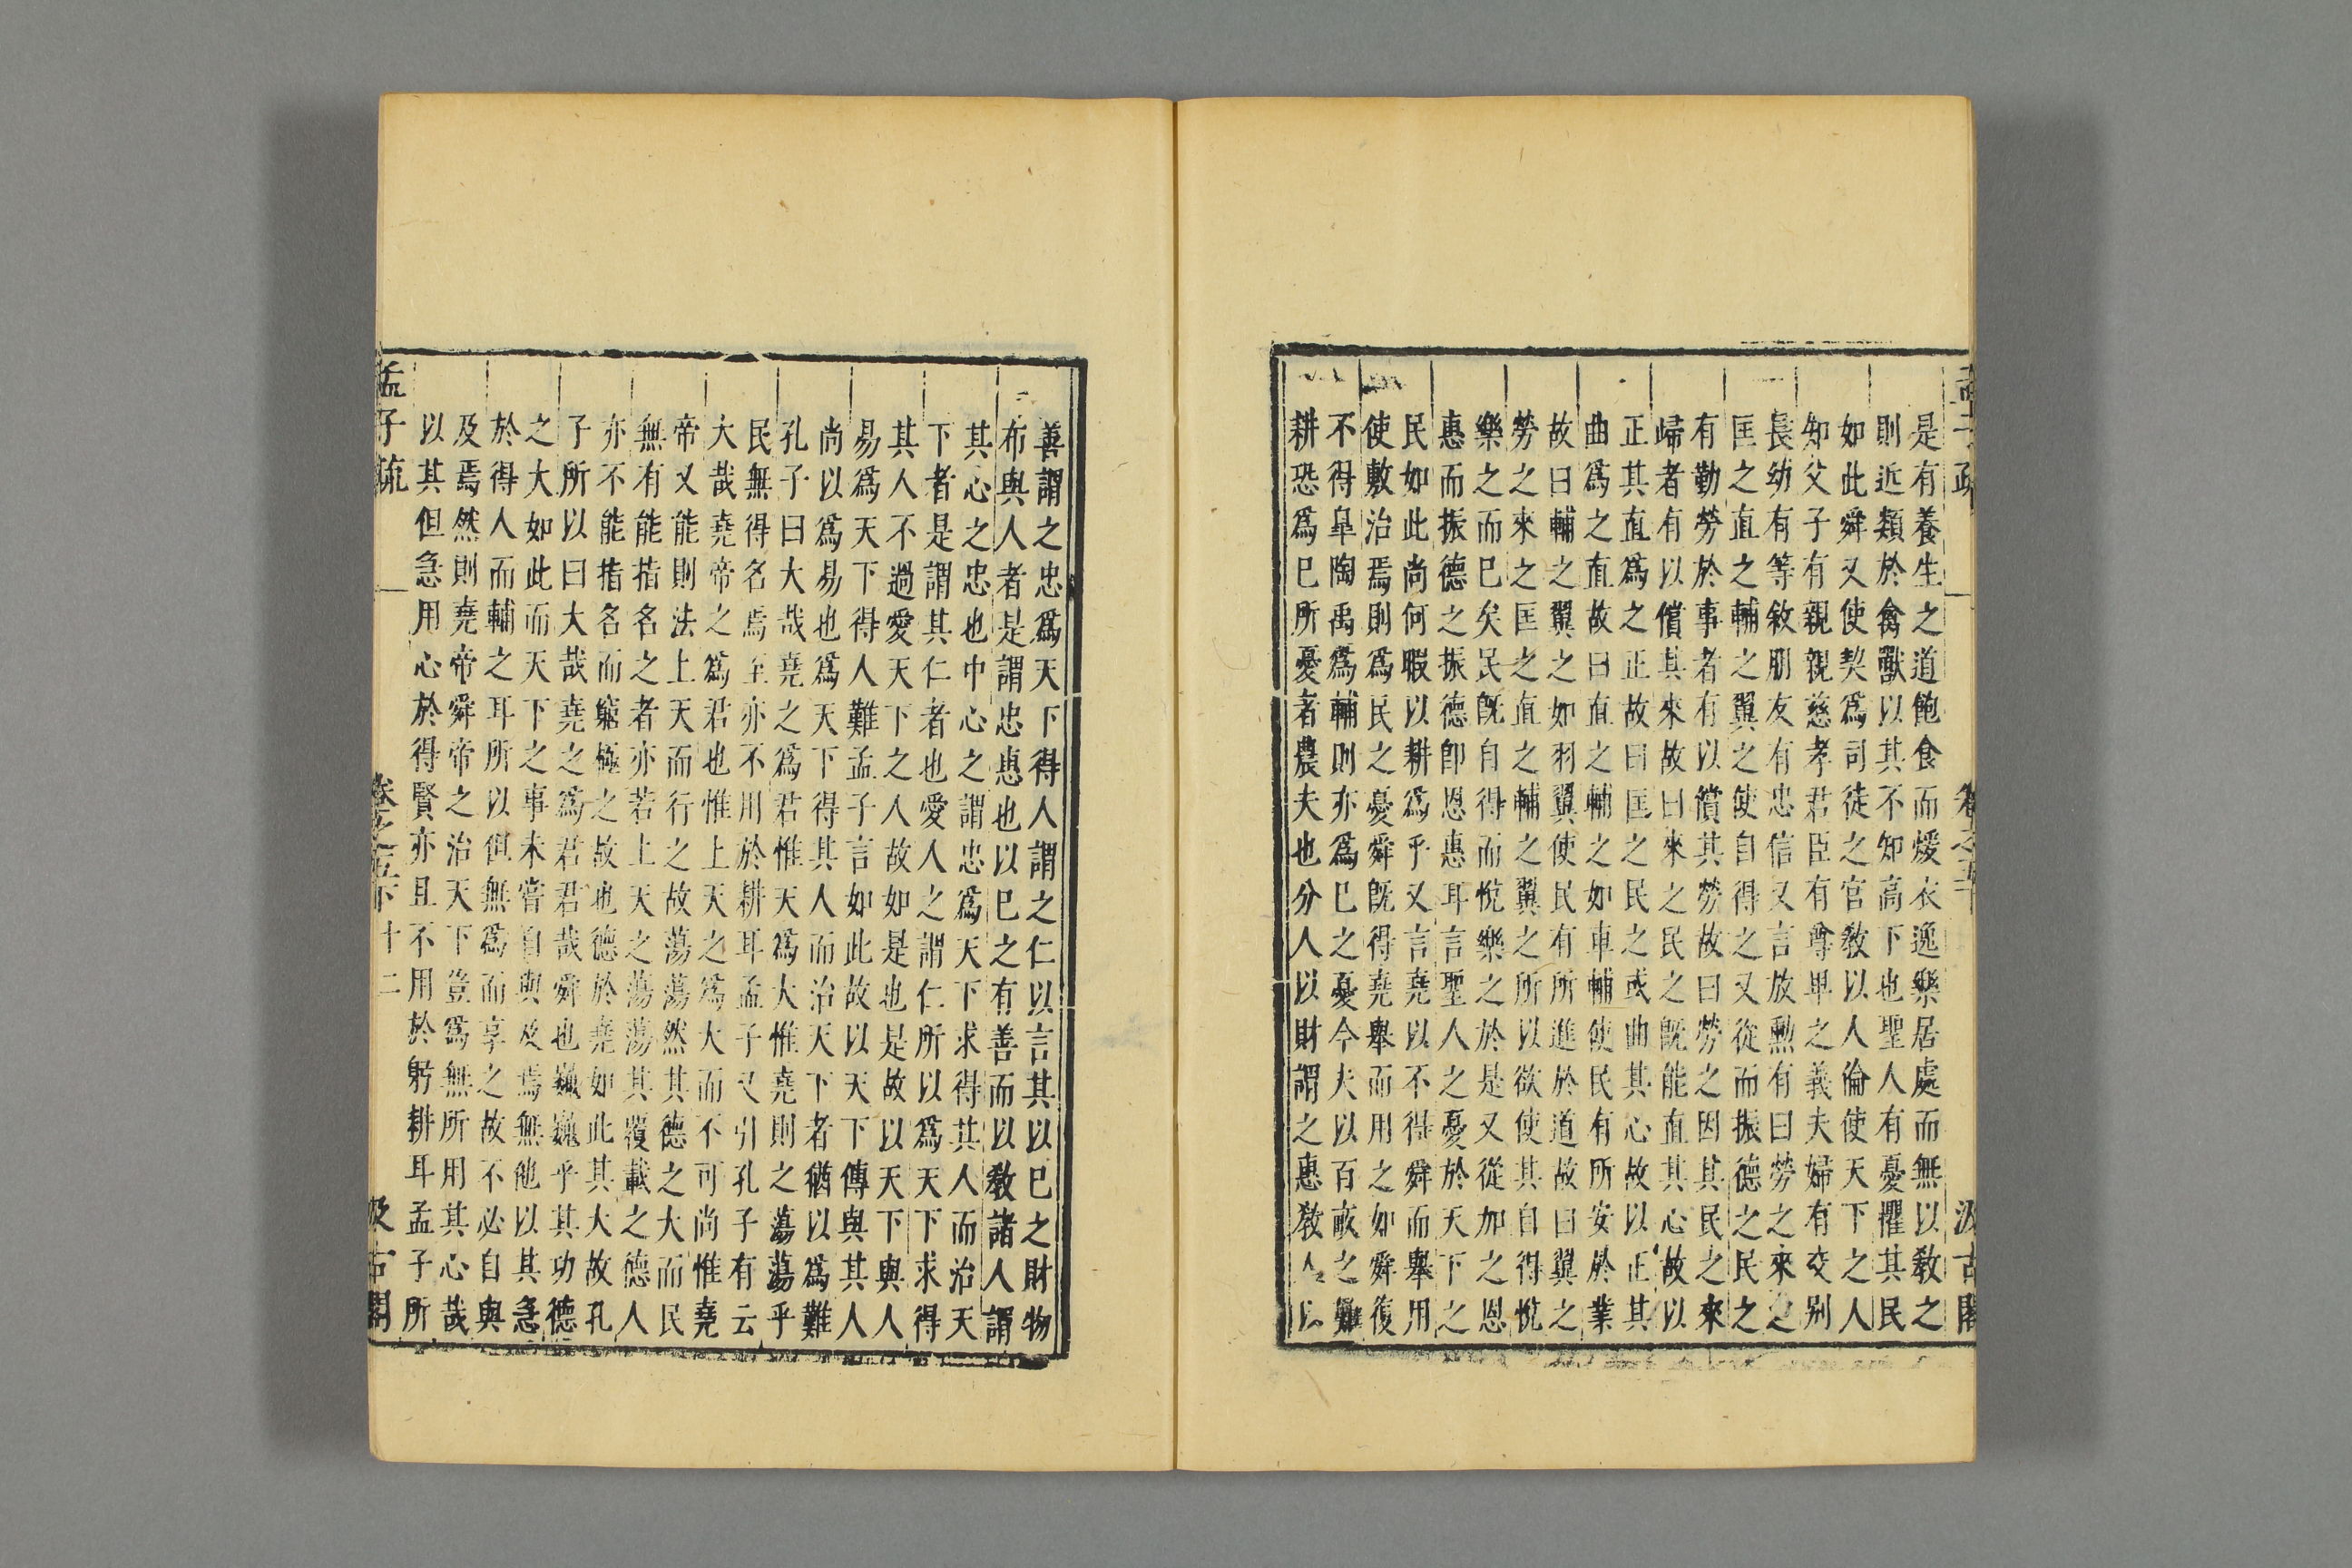 是有養生之道飽食而煖衣逸樂居處而無以敎之
則近類於禽獸以其不知高下也聖人有憂懼其民
如此舜又使契爲司徒之官敎以人倫使天下之人
知父子有親親慈孝君臣有尊卑之義夫婦有交别
長幼有等敘朋友有忠信又言放勲有曰勞之來之
匡之直之輔之翼之使自得之又從而振德之民之
有勤勞於事者有以償其勞故曰勞之因其民之來
歸者有以償其來故曰來之民之旣能直其心故以
正其直爲之正故曰匡之民之或曲其心故以正其
曲爲之直故曰直之輔之如車輔使民有所安於業
故曰輔之翼之如羽翼使民有所進於道故曰翼之
勞之來之匡之直之輔之翼之所以欲使其自得悅
樂之而已矣民旣自得而悅樂之於是又從加之恩
惠而振德之振德卽恩惠耳言聖人之憂於天下之
民如此尚何暇以耕爲乎又言堯以不得舜而舉用
使敷治焉則爲民之憂舜旣得堯舉而用之如舜復
不得皐陶禹爲輔則亦爲已之憂今夫以百畝之難
耕恐爲已所憂者農夫也分人以財謂之惠敎人以
善謂之忠爲天下得人謂之仁以言其以已之財物
布與人者是謂忠惠也以已之有善而以敎諸人謂
其心之忠也中心之謂忠爲天下求得其人而治天
下者是謂其仁者也愛人之謂仁所以爲天下求得
其人不過愛天下之人故如是也是故以天下與人
易爲天下得人難孟子言如此故以天下傳與其人
尚以爲易也爲天下得其人而治天下者猶以爲難
孔子曰大哉堯之爲君惟天爲大惟堯則之蕩蕩乎
民無得名焉至亦不用於耕耳孟子又引孔子有云
大哉堯帝之爲君也惟上天之爲大而不可尚惟堯
帝又能則法上天而行之故蕩蕩然其德之大而民
無有能指名之者亦若上天之蕩蕩其覆載之德人
亦不能指名而窮極之故也德於堯如此其大故孔
子所以曰大哉堯之爲君君哉舜也巍巍乎其功德
之大如此而天下之事未嘗自與及焉無他以其急
於得人而輔之耳所以但無爲而享之故不必自與
及焉然則堯帝舜帝之治天下豈爲無所用其心哉
以其但急用心於得賢亦且不用於躬耕耳孟子所
孟子疏
卷之五下
十二
汲古閣